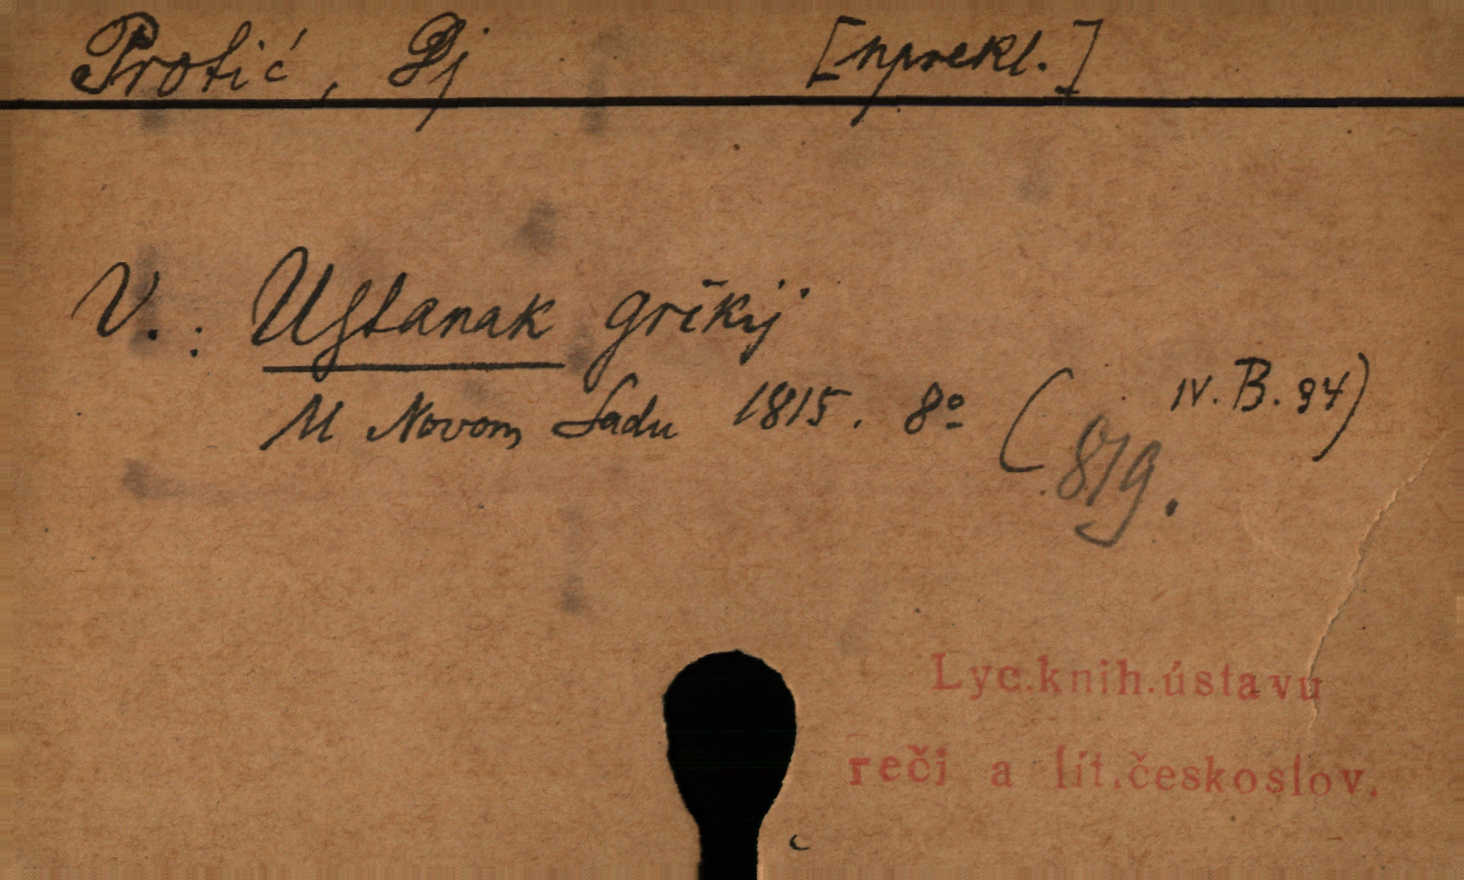 Protić, Dj [nprekl.]
V.: Ustanak grčkij
U Novom Sadu 1815. 8º (IV. B. 94)
819.
Lyc.knih.ústavu
reči a lit.českoslov.